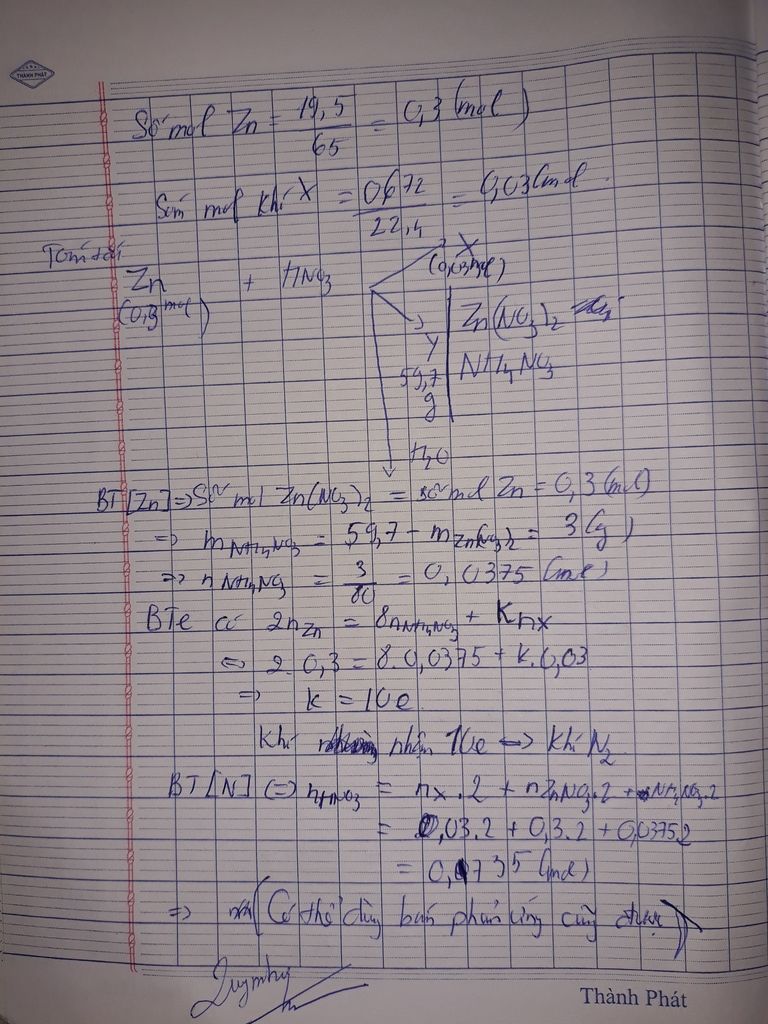 THÀNH PHÁT
Số mol Zn = 19,5/65 = 0,3 (mol)
Số mol khí X = 0672/22,4 = 0,03 (mol
Tóm tắt
Zn + HNO3 X
(0,3 mol) (0,03 mol)
Y 59,7 g Zn(NO3)2
NH4NO3
H2O
BT [Zn] => Số mol Zn(NO3)2 = số mol Zn = 0,3 (mol)
=> mNH4NO3 = 59,7 - mZn(NO3)2 = 3 (g)
=> nNH4NO3 = 3/80 = 0,0375 (mol)
BTe có 2nZn = 8nNH4NO3 + KnX
<=> 2. 0,3 = 8. 0,0375 + K. 0,03
=> k = 10e
Khí nhận 10e <=> khí N2
BT [N] <=> nHNO3 = nX.2 + nZnNO3.2 + NH4NO3.2
= 0,03.2 + 0,3.2 + 0,0375.2
= 0,735 (mol)
=> (Có thể dùng bán phản ứng cũng được)
Thành Phát